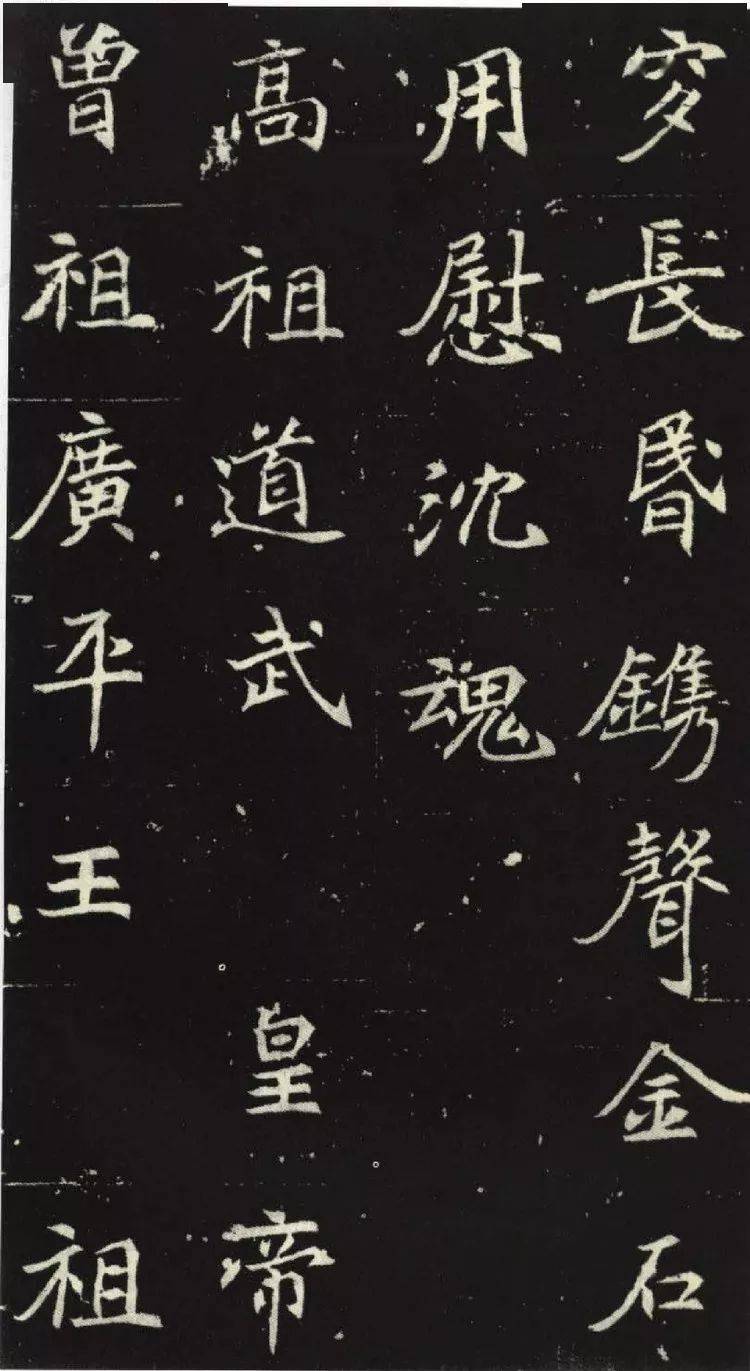 穸長昬鎸聲金石
用慰沈魂
高祖道武皇帝
曾祖廣平王祖